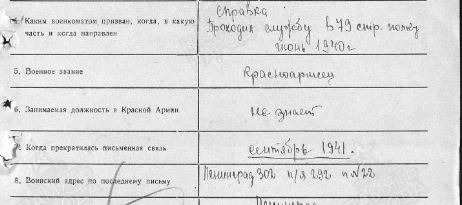 Справка
4. Каким военкоматом призван, когда, в какую
часть и когда направлен
Проходил службу в 79 стр. полку
июнь 1940 г
5. Военное звание
Красноармеец
6. Занимаемая должность в Красной Армии
Не знает
7. Когда прекратилась письменная связь
сентябрь 1941.
8. Воинский адрес по последнему письму
Ленинград 302 п/я 292 п №22